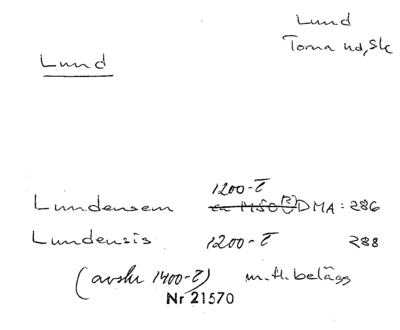 Lund
Torna hd, Sk
Lund
1200-t
Lundensem DMA: 286
Lundensis 1200-t 288
(avskr 1400-t) m.fl. belägg
Nr 21570